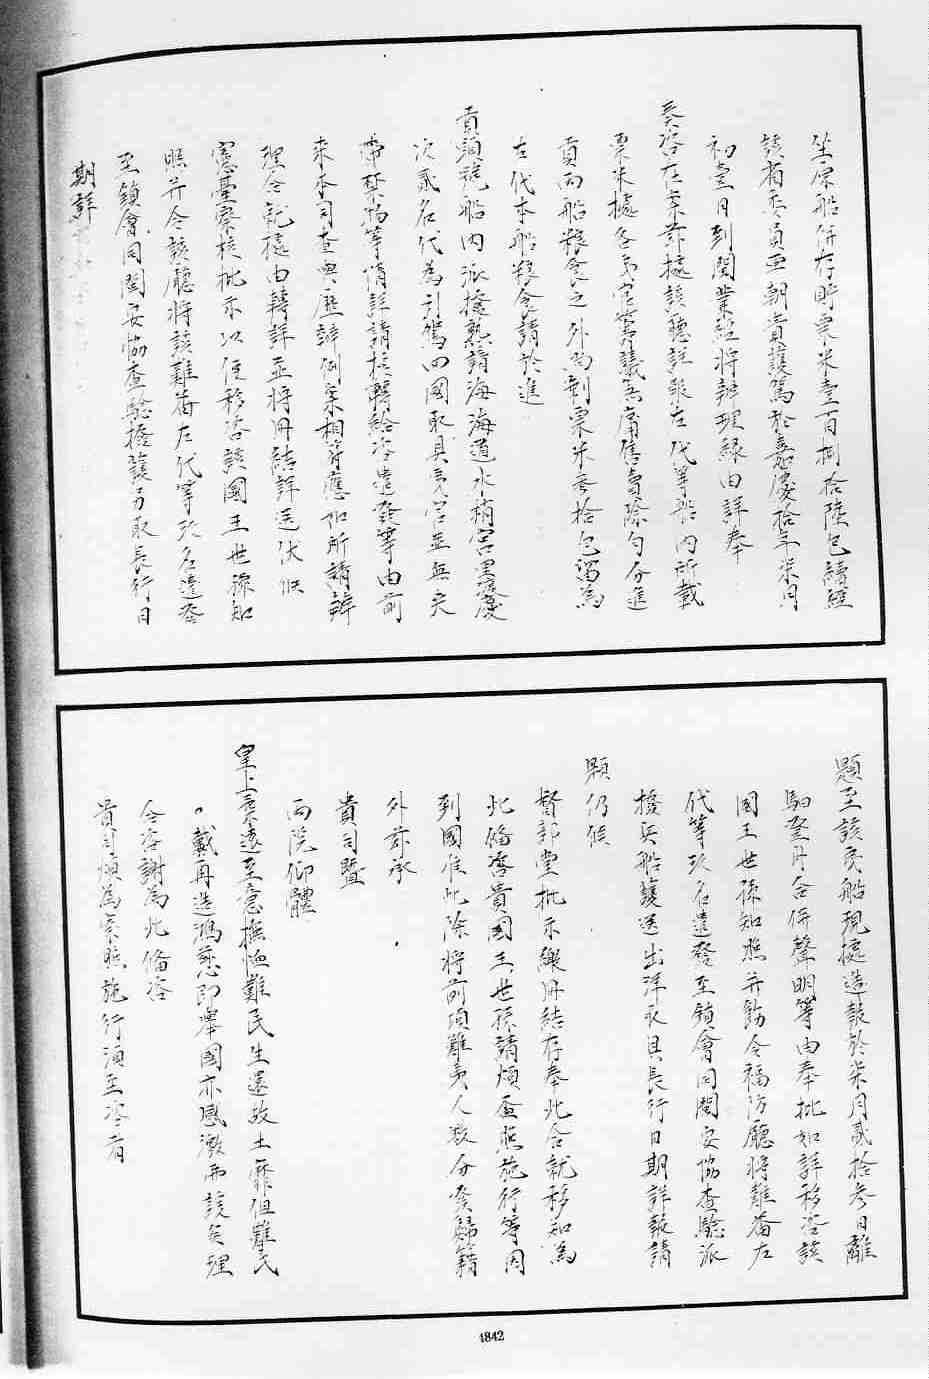 坐原船併存貯粟米壹百捌拾陸包續經
該有委員王朝賞護駕於嘉慶拾年柒月
初壹日到閩業經將辦理緣由詳奉
奏咨在案茲據該廳詳報左代等船內所載
粟米據各夷官等議無庸售賣除勻分進
貢兩船糧食之外尚剩粟米叁拾包留為
左代本船糧食請於進
貢頭號船內派撥熟諳海道水梢宮里慶
次貳名代為引駕回國取具夷官並無夾
帶禁物等情詳請核轉給咨遣發等由前
來本司查與歷辦例案相符應如所請辦
理合就據由轉詳並將冊結詳送伏候
憲臺察核批示以便移咨該國王世孫知
照并令該廳將該難番左代等玖名遣發
至鎮會同閩安協查驗撥護另取長行日
期詳
題至該民船現據造報於柒月貳拾參日離
駟登舟合併聲明等由奉批如詳移咨該
國王世孫知照并飭令福防廳將難番左
代等玖名遣發至鎮會同閩安協查驗派
撥兵船護送出洋取具長行日期詳報請
題仍候
督部堂批示繳冊結存奉此合就移知為
此備咨貴國王世孫請煩查照施行等因
到國准此除將前項難夷人數分發歸籍
外茲承
貴司暨
兩院仰體
皇上柔遠至意撫恤難民生還故土靡但難民
戴再造鴻慈即舉國亦感激無該矣理
合咨謝為此備咨
貴司煩為察照施行須至咨者
4842